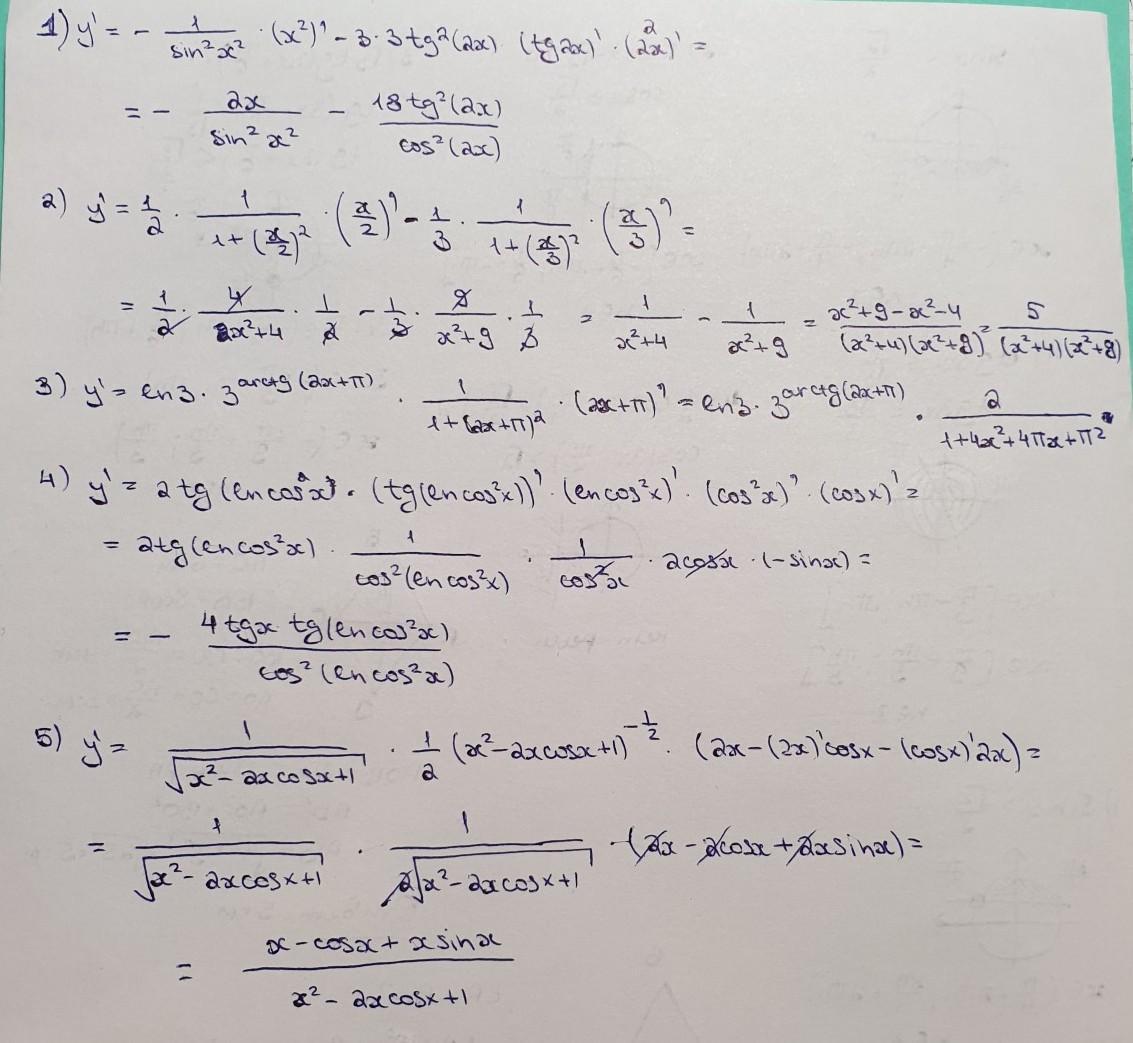 1) y' = - 1/(sin²x²) · (x²)' - 3·3tg²(2x) · (tg2x)' · (2x)' =
= - 2x/(sin²x²) - 18tg²(2x)/(cos²(2x))
2) y' = 1/2 · 1/(1+(x/2)²) · (x/2)' - 1/3 · 1/(1+(x/3)²) · (x/3)' =
= 1/2 · 4/(x²+4) · 1/2 - 1/3 · 9/(x²+9) · 1/3 = 1/(x²+4) - 1/(x²+9) = (x²+9-x²-4)/((x²+4)(x²+9)) = 5/((x²+4)(x²+9))
3) y' = ln3 · 3^(arctg(2x+π)) · 1/(1+(2x+π)²) · (2x+π)' = ln3 · 3^(arctg(2x+π)) · 2/(1+4x²+4πx+π²)
4) y' = 2tg(lncos²x) · (tg(lncos²x))' · (lncos²x)' · (cos²x)' · (cosx)' =
= 2tg(lncos²x) · 1/(cos²(lncos²x)) · 1/(cos²x) · 2cosx · (-sinx) =
= - (4tgx tg(lncos²x))/(cos²(lncos²x))
5) y' = 1/√(x²-2xcosx+1) · 1/2 (x²-2xcosx+1)^(-1/2) · (2x-(2x)'cosx-(cosx)'2x) =
= 1/√(x²-2xcosx+1) · 1/(2√(x²-2xcosx+1)) · (2x-2cosx+2xsinx) =
= (x-cosx+xsinx)/(x²-2xcosx+1)